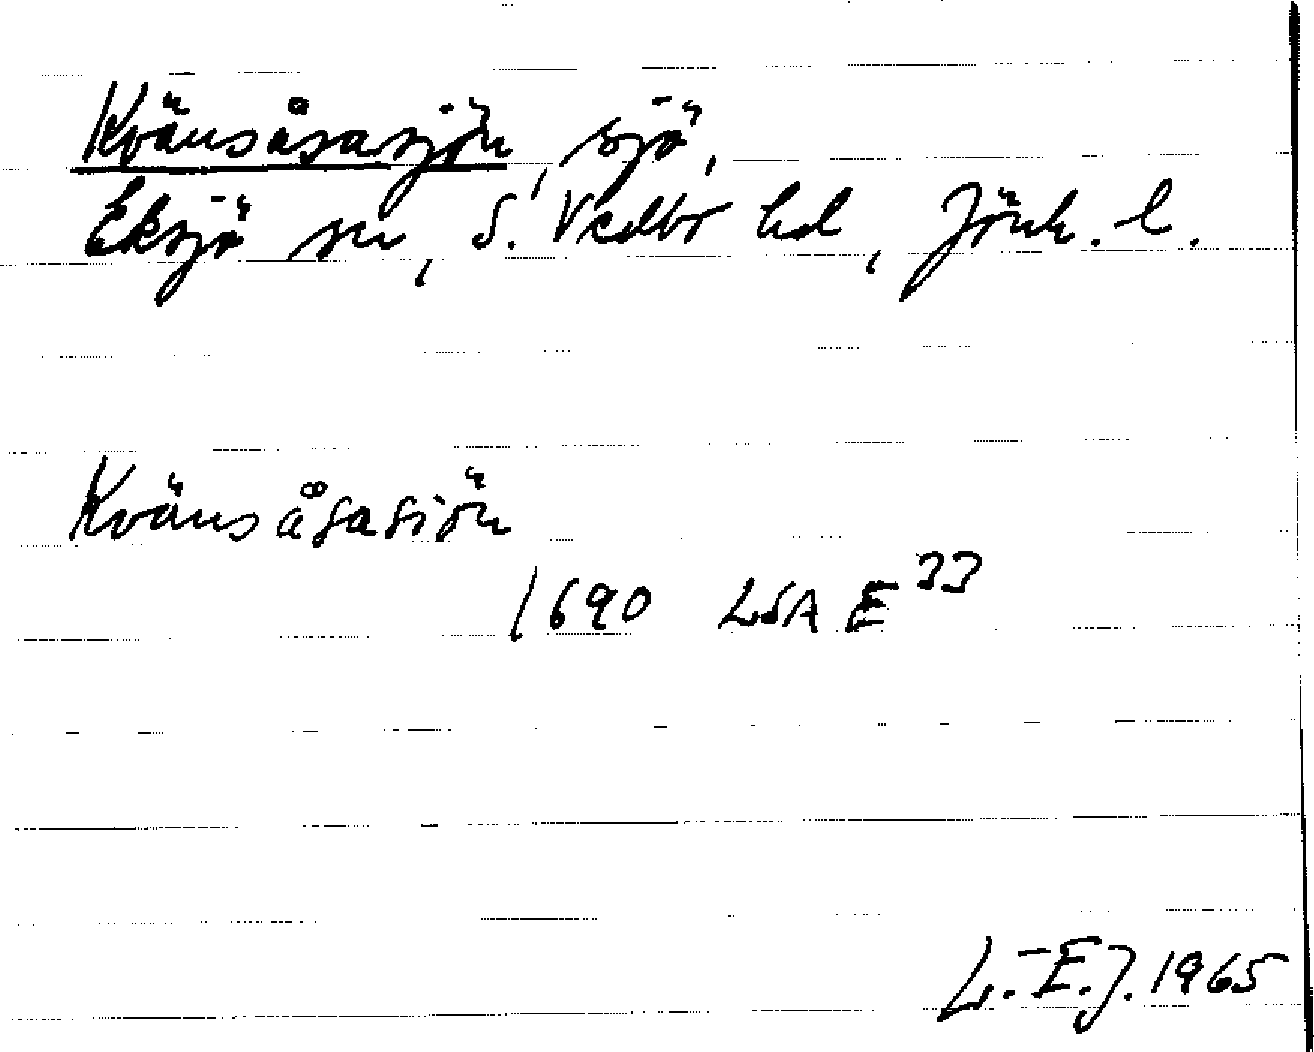 Kvänsåsasjön, sjö,
Eksjö sn, S. Vedbo hd, Jönk. l.
Kvänsåsasiön
1690 LSA E 33
L.-E.J. 1965